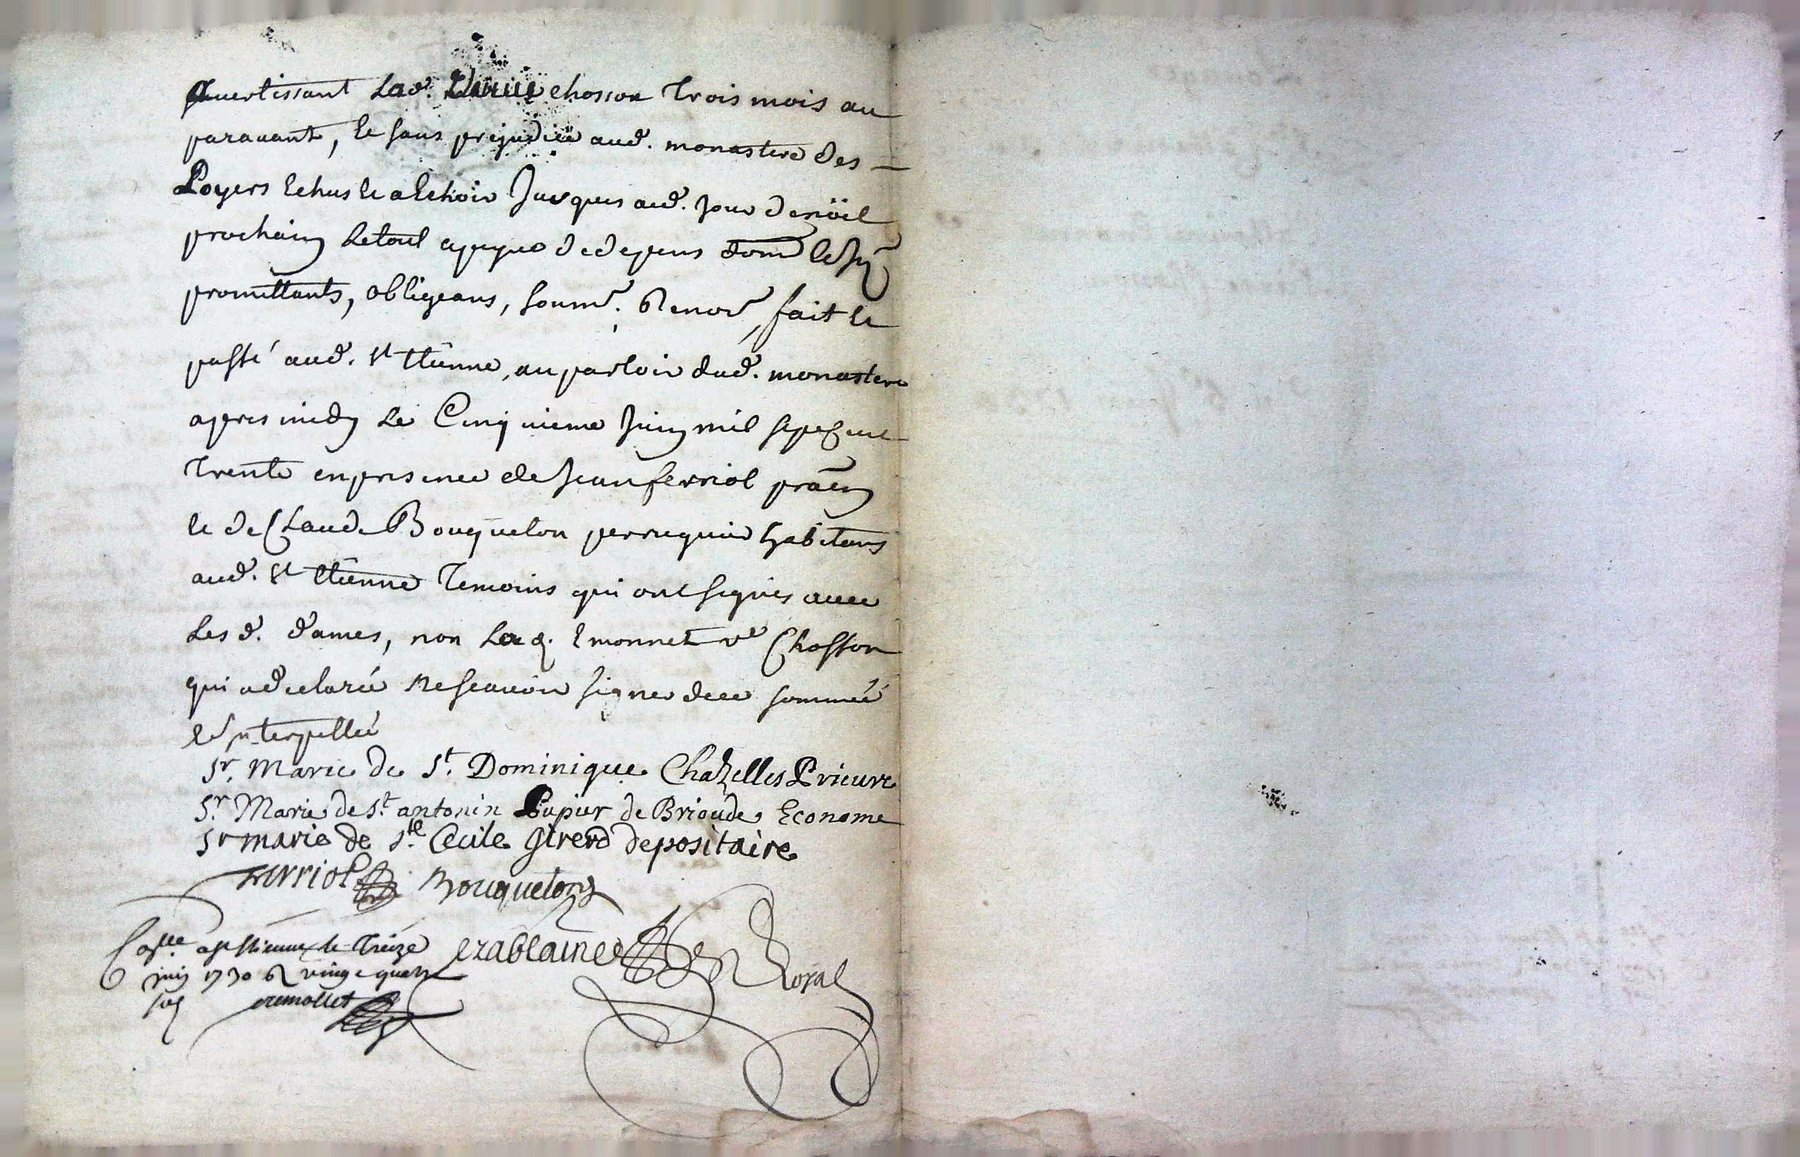 Avertissant Lad. Veuve chosson Trois mois au
paravant, Et sans prejudice aud. monastere des
Loyers Echus Et a Echoir Jusques aud. Jour de noël
prochain Le tout a peyne de depens dom Et
promettants, obligeans, soumr. & renonr, fait Et
passé aud. st Etienne, au parloir dud. monastere
apres midy Le Cinquieme Juin mil sept Cent
Trente en presence de Jean ferriol praen
Et de Claude Bouqueton perruquier habitans
aud. St Etienne Temoins qui ont signés avec
Les d. dames, non La d. Emonnet ve Chosson
qui a declaré ne scavoir signer de ce sommée
Et Interpellée
Sr. Marie de St. Dominique Chazelles Prieure
Sr. Marie de St. antonin Pupier de Brioude Econome
Sr marie de Ste Cecile Girerd depositaire
ferriol Bouqueton
Conlle a st Etienne le Treize
juin 1730 R vingt quatre
sols